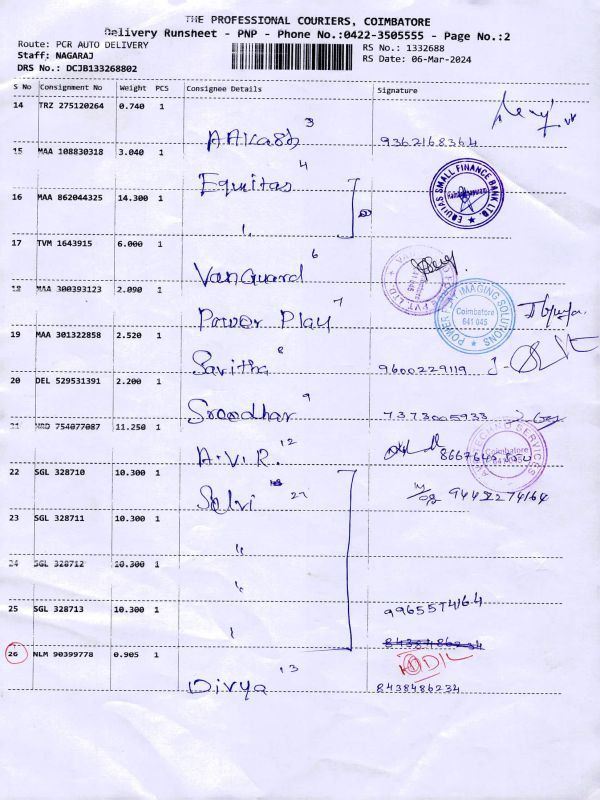 THE PROFESSIONAL COURIERS, COIMBATORE
Delivery Runsheet - PNP - Phone No.:0422-3505555 - Page No.:2
Route: PCR AUTO DELIVERY
Staff: NAGARAJ
DRS No.: DCJB133268802
RS No.: 1332688
RS Date: 06-Mar-2024
S No Consignment No Weight PCS Consignee Details Signature
14 TRZ 275120264 0.740 1
AAKash 3 9362168364
15 MAA 108830318 3.040 1
Equitas 4
EQUITAS SMALL FINANCE BANK LTD.
16 MAA 862044325 14.300 1
"
17 TVM 1643915 6.000 1
VanGuard 6
18 MAA 300393123 2.090 1
Power Play 7
POWER PLAY IMAGING SOLUTIONS
Coimbatore
641 045
19 MAA 301322858 2.520 1
Savitha 8 9600229119
20 DEL 529531391 2.200 1
Sreedhar 9 7373005933
21 NRD 754077087 11.250 1
A.V.R. 12
TECHNO SERVICES
Coimbatore
22 SGL 328710 10.300 1
Selvi 27
23 SGL 328711 10.300 1
"
24 SGL 328712 10.300 1
"
25 SGL 328713 10.300 1
"
26 NLM 90399778 0.905 1
Divya 13 8438486234